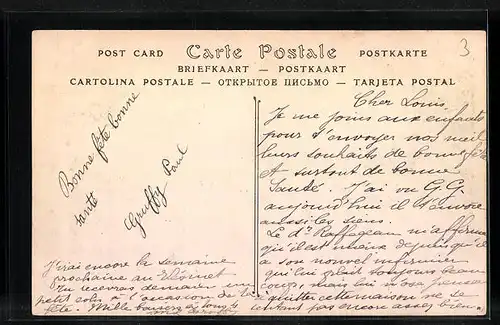 POST CARD Carte Postale POSTKARTE
BRIEFKAART — POSTKAART
CARTOLINA POSTALE — ОТКРЫТОЕ ПИСЬМО — TARJETA POSTAL
3
Bonne fête bonne
santé
Paul
Cher Louis
Je me joins aux enfants
pour t'envoyer nos meil
leurs souhaits de bonne fête
et surtout de bonne
Santé. J'ai vu G.G.
aujourd'hui il t'envoie
aussi les siens.
Le dr Raffegeau m'affirme
qu'il est mieux depuis qu'il
a son nouvel infirmier
qui lui plait toujours beau
coup, mais lui n'ose
quitter cette maison ne se
sentant pas encore assez bien.
J'irai encore la semaine
prochaine au Vésinet
Tu recevras demain un
petit colis à l'occasion de ta
fête. Mille baisers à tous